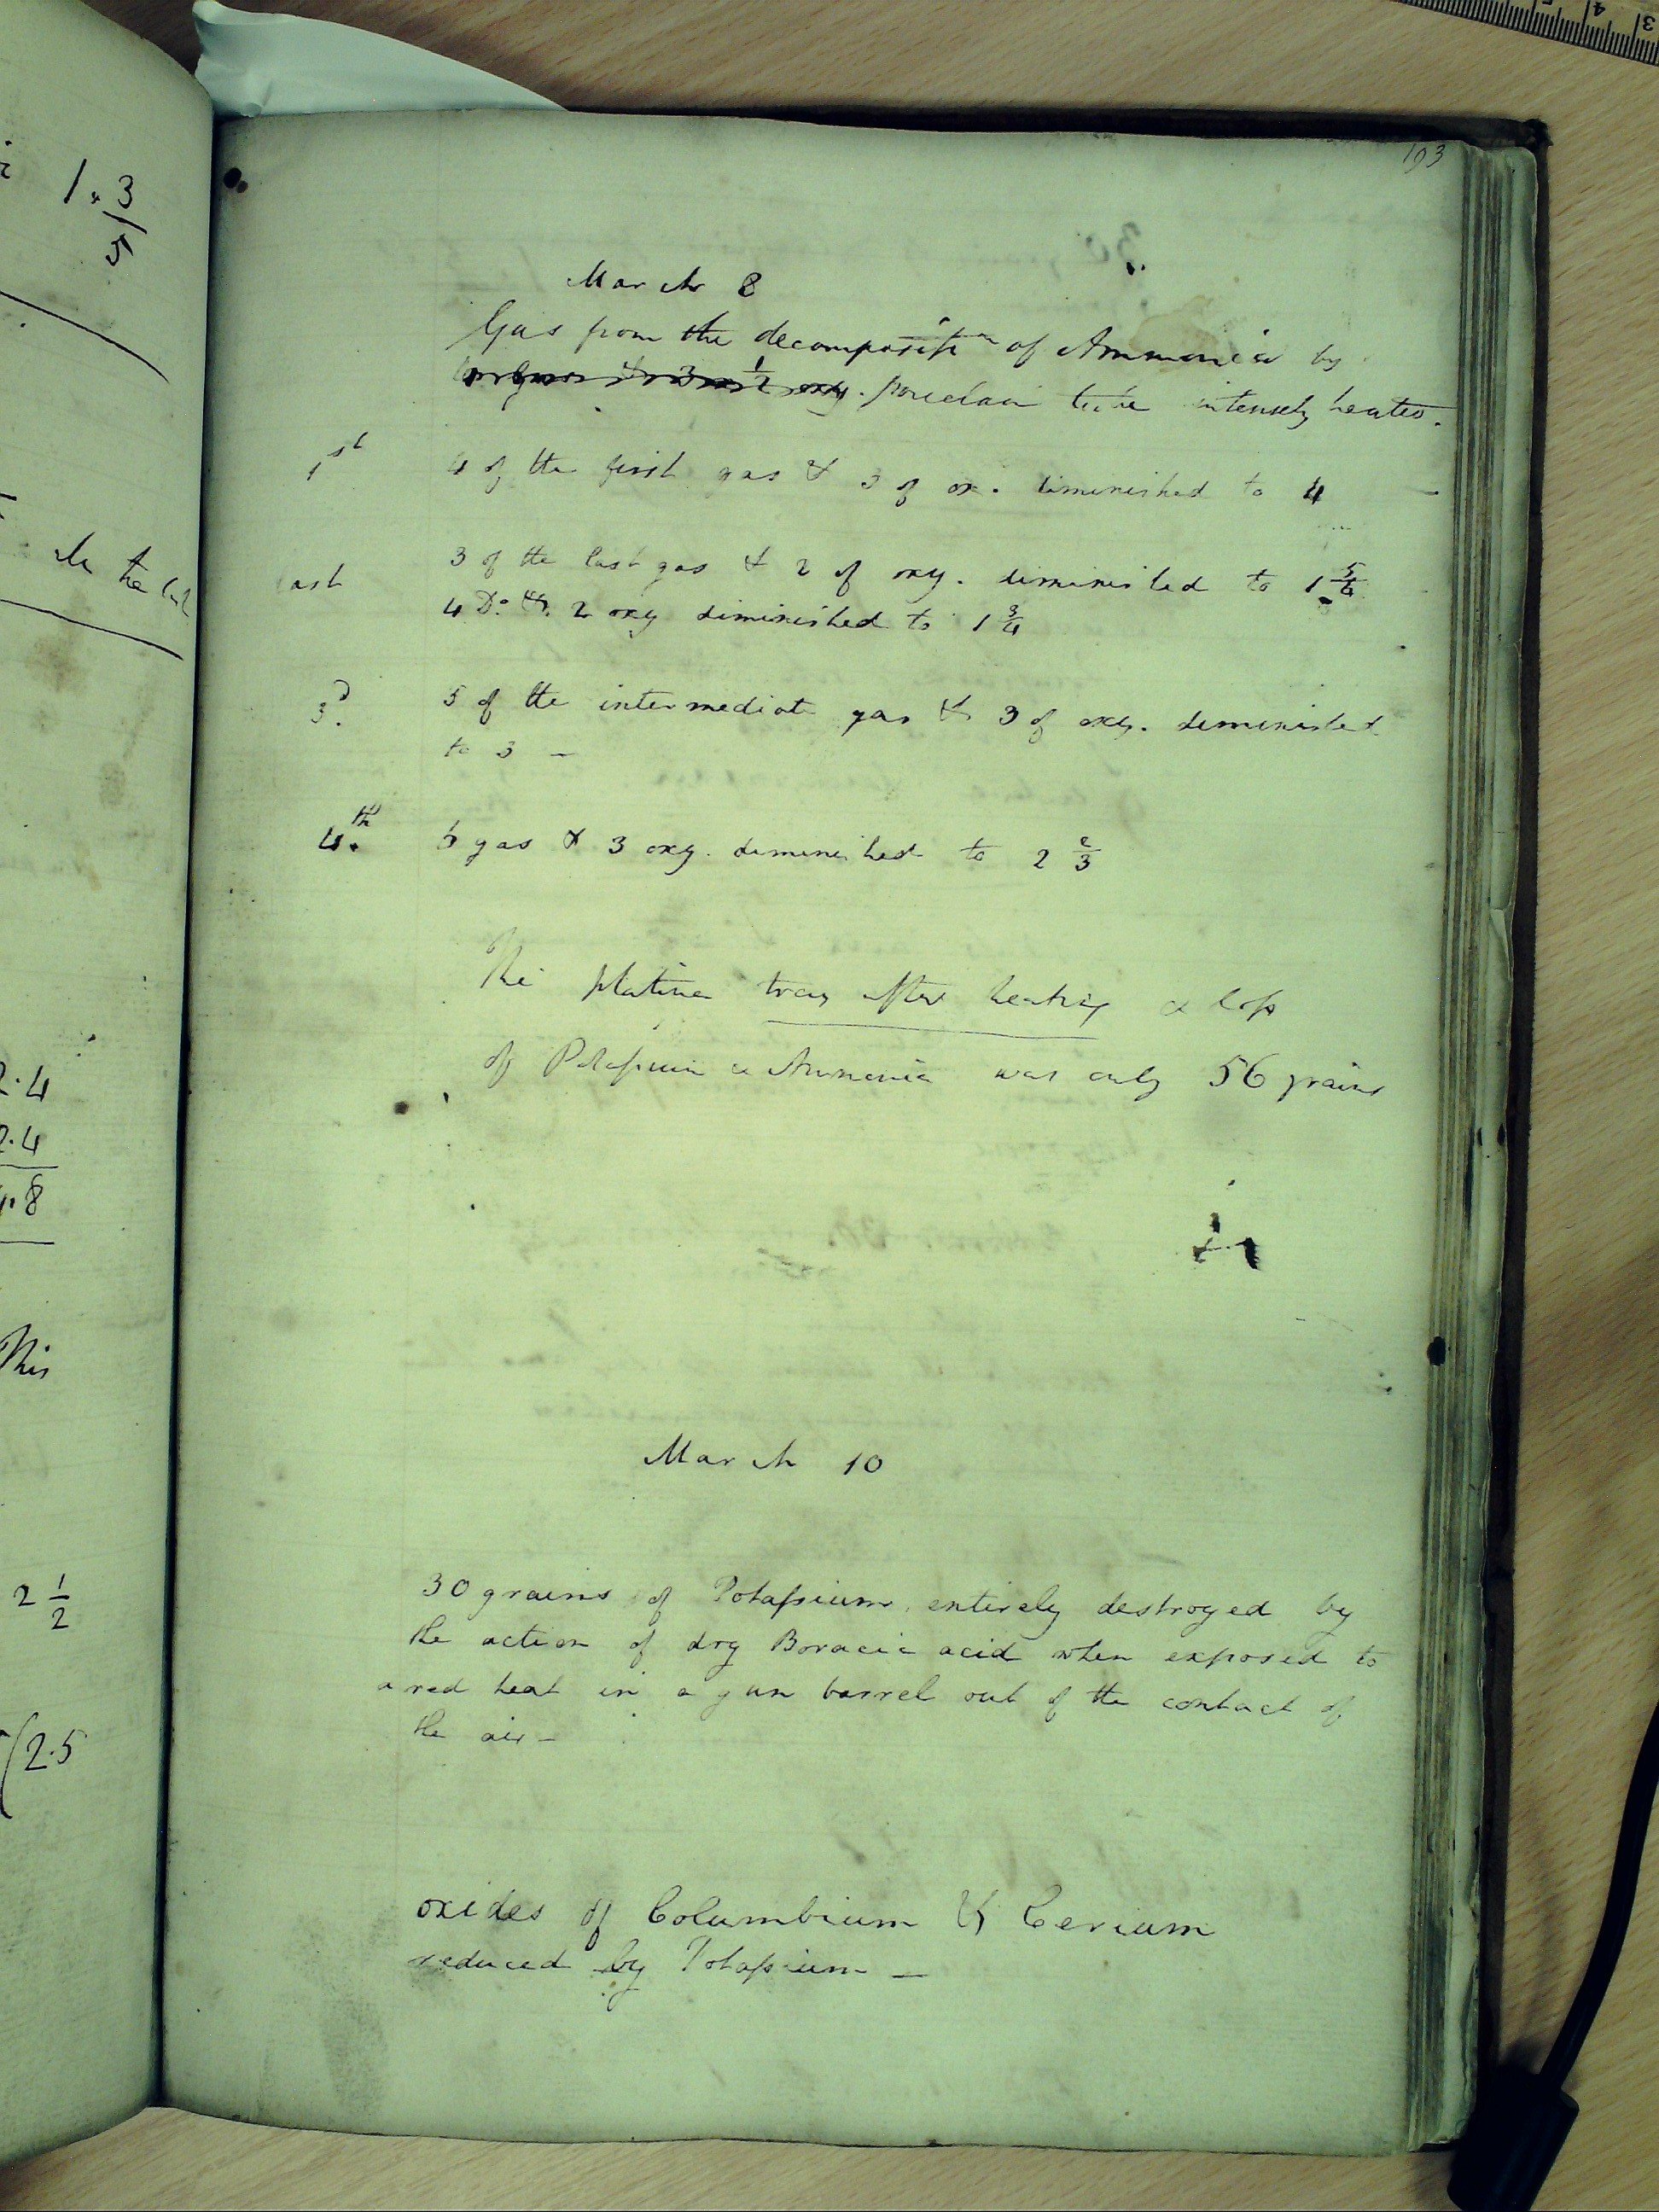 1.3
5
193
March 8
Gas from the decompositn of Ammonia by
porcelain tube intensely heated.
1st 4 of the first gas & 3 of ox. diminished to 4
last 3 of the last gas & 2 of oxy. diminished to 1
4 Do. & 2 oxy diminished to 1 3/4
3d. 5 of the intermediate gas & 3 of oxy. diminished
to 3 –
4.th gas & 3 oxy. diminished to 2 2/3
The platina tray after heating & loss
of Potassium & Ammonia was only 56 grains
2.4
2.4
4.8
This
March 10
2 1/2
30 grains of Potassium entirely destroyed by
the action of dry Boracic acid when exposed to
a red heat in a gun barrel out of the contact of
the air –
(2.5
oxides of Columbium & Cerium
reduced by Potassium –